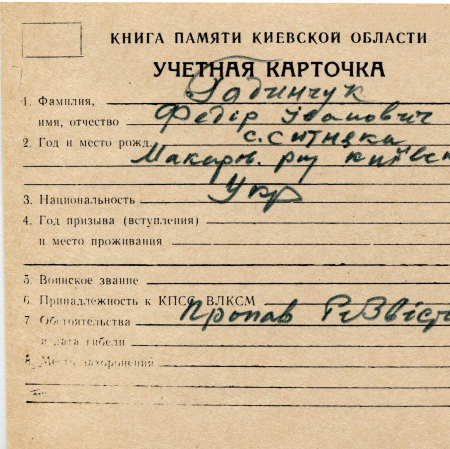 КНИГА ПАМЯТИ КИЕВСКОЙ ОБЛАСТИ
УЧЕТНАЯ КАРТОЧКА
1. Фамилия, Годинчук
имя, отчество Федір Іванович
2. Год и место рожд. с. Ситняки
Макарів. р-ну Київськ
3. Национальность Укр
4. Год призыва (вступления)
и место проживания
5. Воинское звание
6. Принадлежность к КПСС, ВЛКСМ
7. Обстоятельства Пропав
и дата гибели
8. Место захоронения